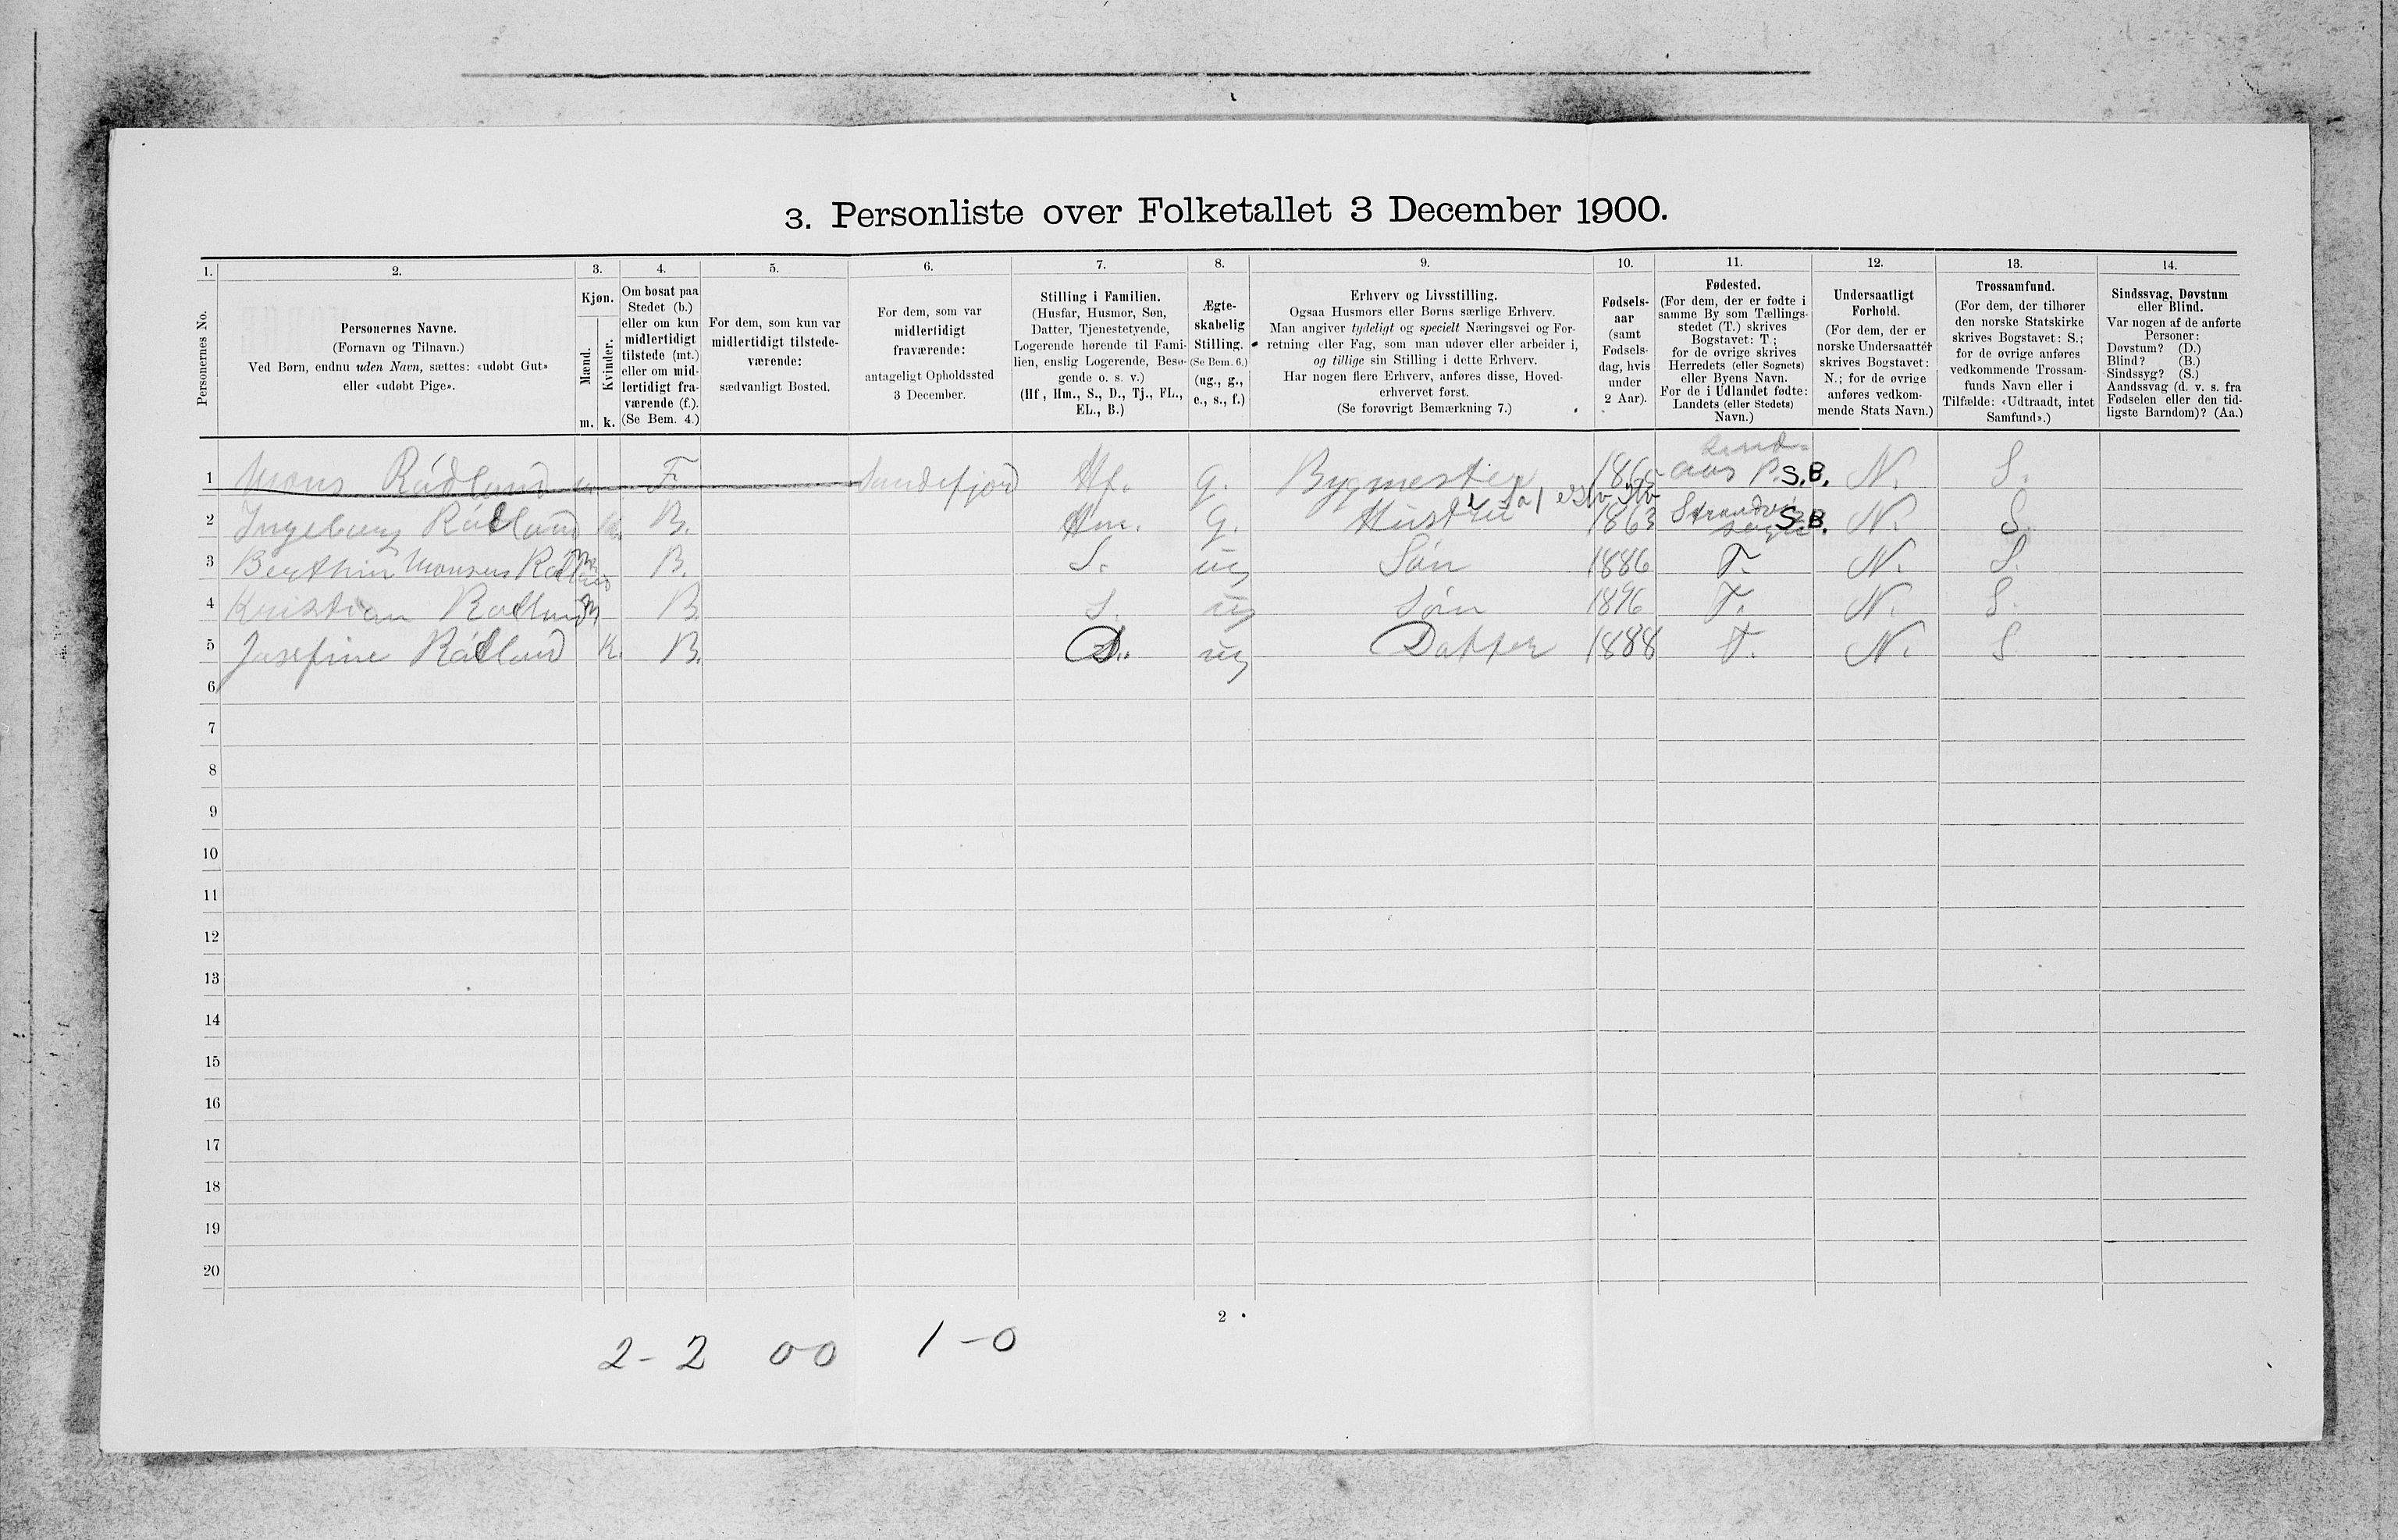 3. Personliste over Folketallet 3 December 1900.
1. 2. 3. 4. 5. 6. 7. 8. 9. 10. 11. 12. 13. 14.
Personernes No.
Personernes Navne.
(Fornavn og Tilnavn.)
Ved Børn, endnu uden Navn, sættes: «udøbt Gut»
eller «udøbt Pige».
Kjøn.
Mænd.
Kvinder.
m. k.
Om bosat paa
Stedet (b.)
eller om kun
midlertidigt
tilstede (mt.)
eller om mid-
lertidigt fra-
værende (f.).
(Se Bem. 4.)
For dem, som kun var
midlertidigt tilstede-
værende:
sædvanligt Bosted.
For dem, som var
midlertidigt
fraværende:
antageligt Opholdssted
3 December.
Stilling i Familien.
(Husfar, Husmor, Søn,
Datter, Tjenestetyende,
Logerende hørende til Fami-
lien, enslig Logerende, Besø-
gende o. s. v.)
(Hf, Hm., S., D., Tj., FL.,
EL., B.)
Ægte-
skabelig
Stilling.
(Se Bem. 6.)
(ug., g.,
e., s., f.)
Erhverv og Livsstilling.
Ogsaa Husmors eller Børns særlige Erhverv.
Man angiver tydeligt og specielt Næringsvei og For-
retning eller Fag, som man udøver eller arbeider i,
og tillige sin Stilling i dette Erhverv.
Har nogen flere Erhverv, anføres disse, Hoved-
erhvervet først.
(Se forøvrigt Bemærkning 7.)
Fødsels-
aar
(samt
Fødsels-
dag, hvis
under
2 Aar).
Fødested.
(For dem, der er fødte i
samme By som Tællings-
stedet (T.) skrives
Bogstavet: T.;
for de øvrige skrives
Herredets (eller Sognets)
eller Byens Navn.
For de i Udlandet fødte:
Landets (eller Stedets)
Navn.)
Undersaatligt
Forhold.
(For dem, der er
norske Undersaatter
skrives Bogstavet:
N.; for de øvrige
anføres vedkom-
mende Stats Navn.)
Trossamfund.
(For dem, der tilhører
den norske Statskirke
skrives Bogstavet: S.;
for de øvrige anføres
vedkommende Trossam-
funds Navn eller i
Tilfælde: «Udtraadt, intet
Samfund».)
Sindssvag, Døvstum
eller Blind.
Var nogen af de anførte
Personer:
Døvstum? (D.)
Blind? (B.)
Sindssyg? (S.)
Aandssvag (d. v. s. fra
Fødselen eller den tid-
ligste Barndom)? (Aa.)
1 Mons Rådland m F. Sandefjord Hf. g. Bygmester 1865 aas P. S.B. N. S.
2 Ingeborg Rådland K. B. Hm. g. Hustru 1863 Strandvig Sogn S.B. N. S.
3 Berthin Monsen Rådland m B. S. ug Søn 1886 T. N. S.
4 Kristian Radland m B. S. ug Søn 1896 T. N. S.
5 Josefine Rådland K. B. D. ug Datter 1888 T. N. S
6
7
8
9
10
11
12
13
14
15
16
17
18
19
20
2
2-2 00 1-0